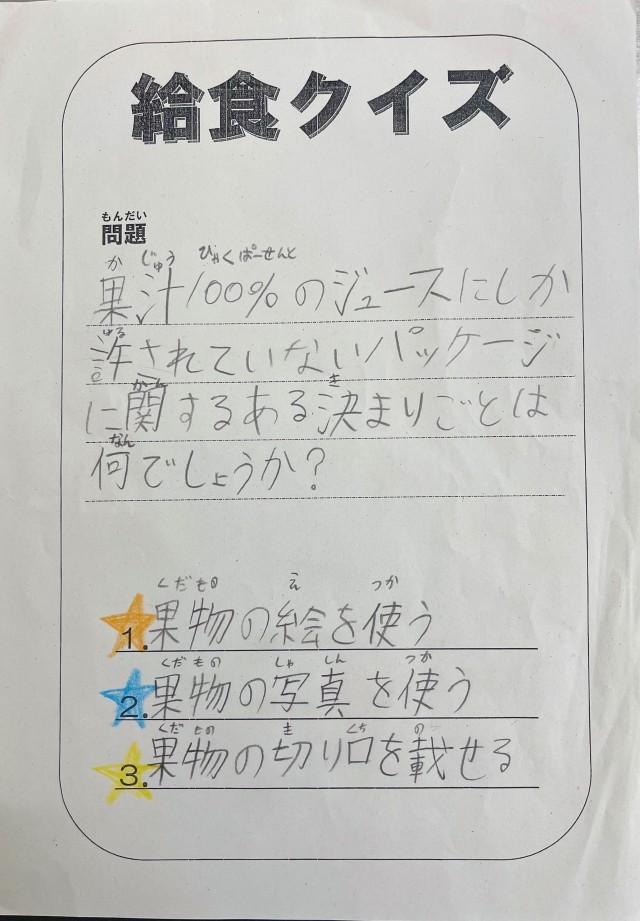 給食クイズ
もんだい
問題
か じゅう ひゃくぱーせんと
果汁100%のジュースにしか
ゆる
許されていないパッケージ
かん き
に関するある決まりごとは
なん
何でしょうか?
くだもの え つか
1.果物の絵を使う
くだもの しゃ しん つか
2.果物の写真を使う
くだもの き くち の
3.果物の切り口を載せる